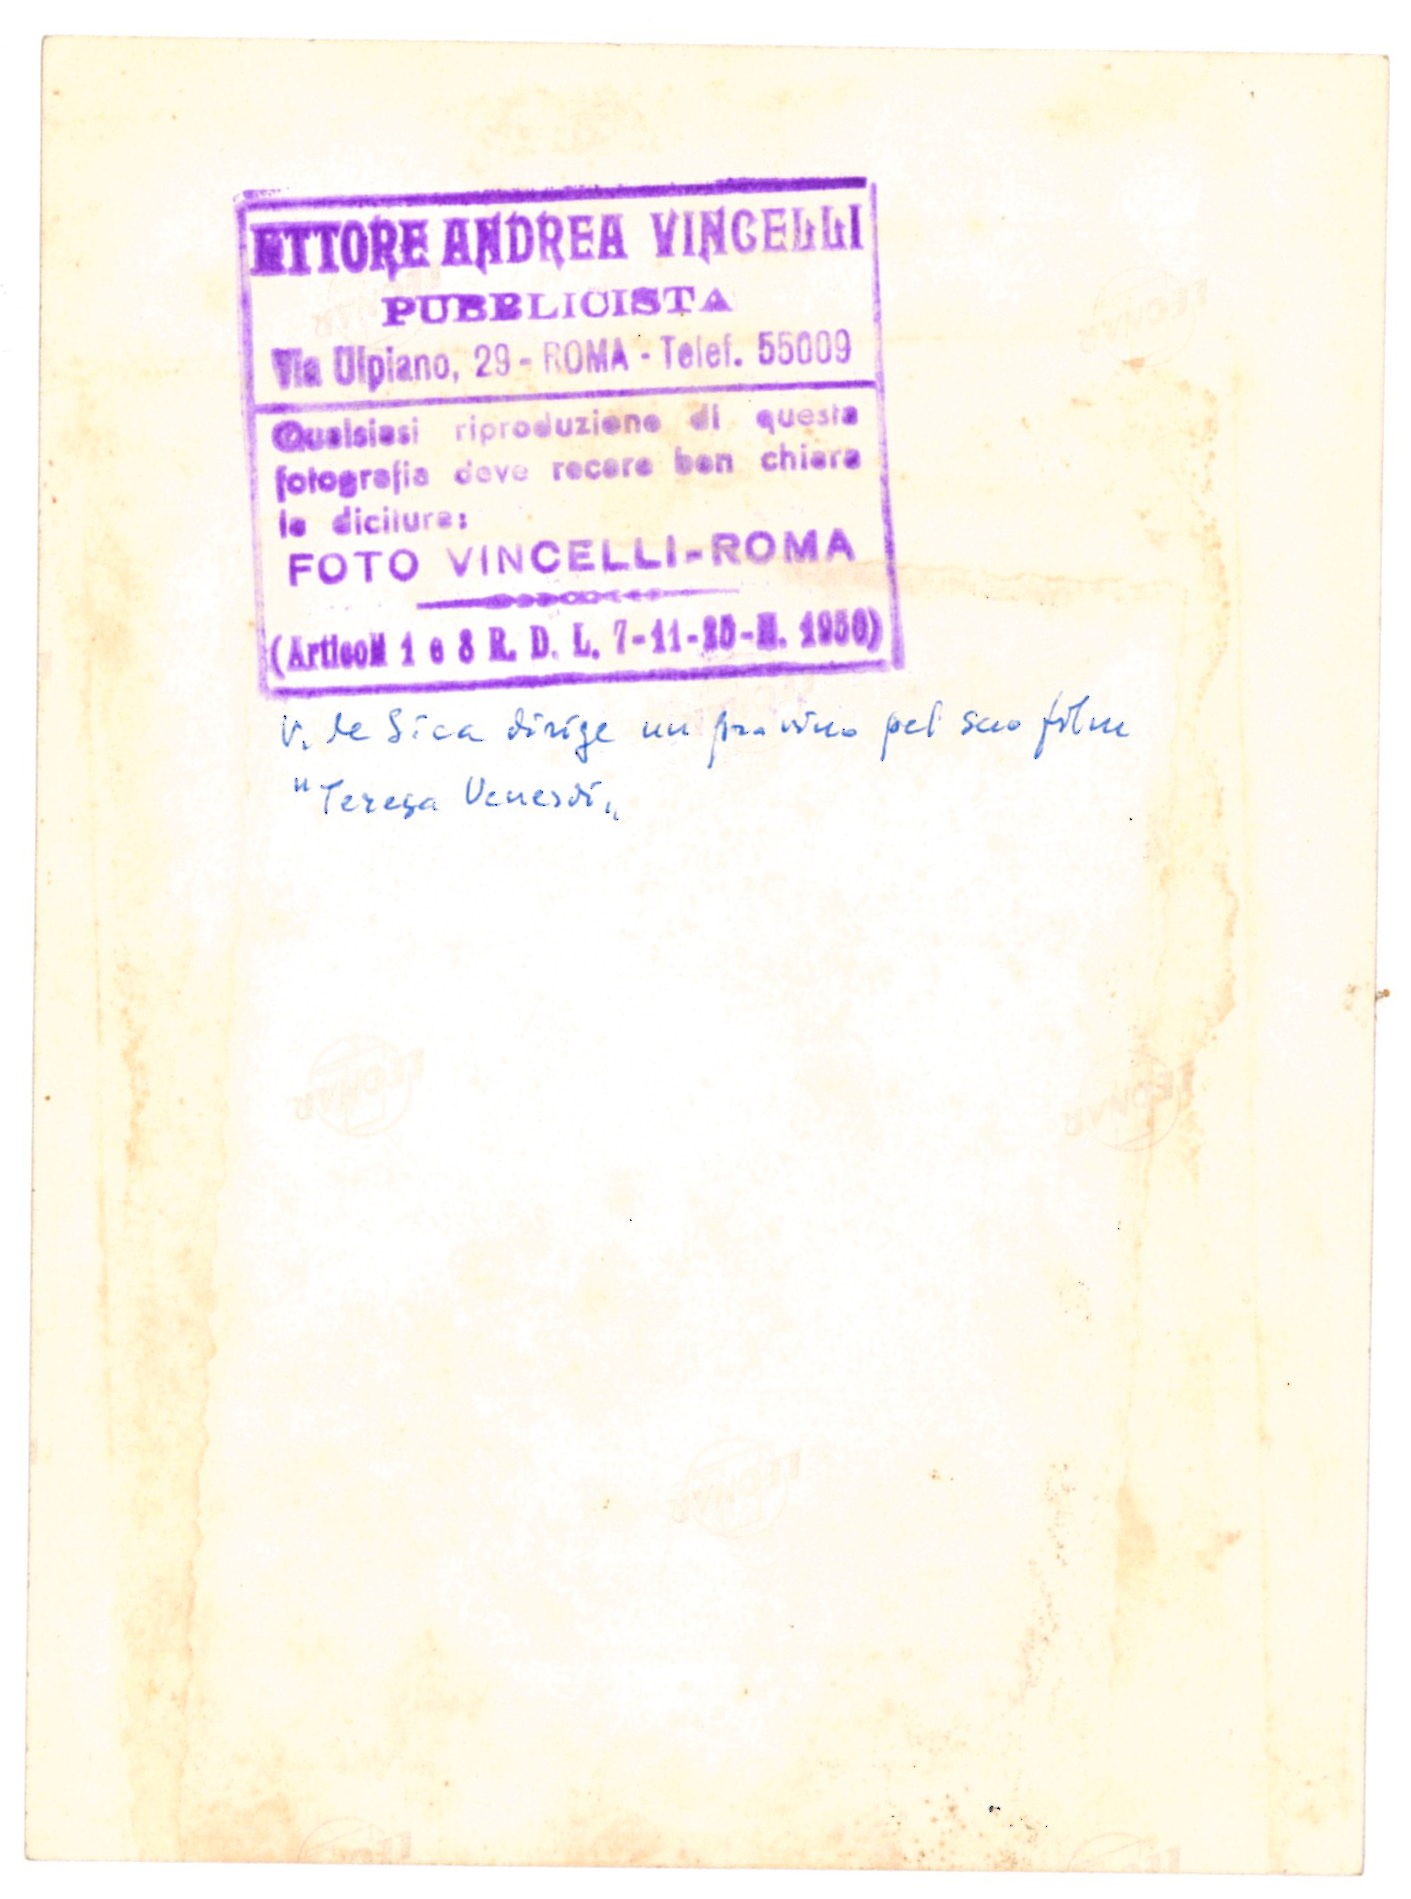 ETTORE ANDREA VINCELLI
PUBBLICISTA
Via Ulpiano, 29 - ROMA - Telef. 55009
Qualsiasi riproduzione di questa
fotografia deve recare ben chiara
la dicitura:
FOTO VINCELLI-ROMA
(Articoli 1 e 8 R. D. L. 7-11-25-N. 1950)
V. de Sica dirige un provino pel suo film
"Teresa Venerdì„